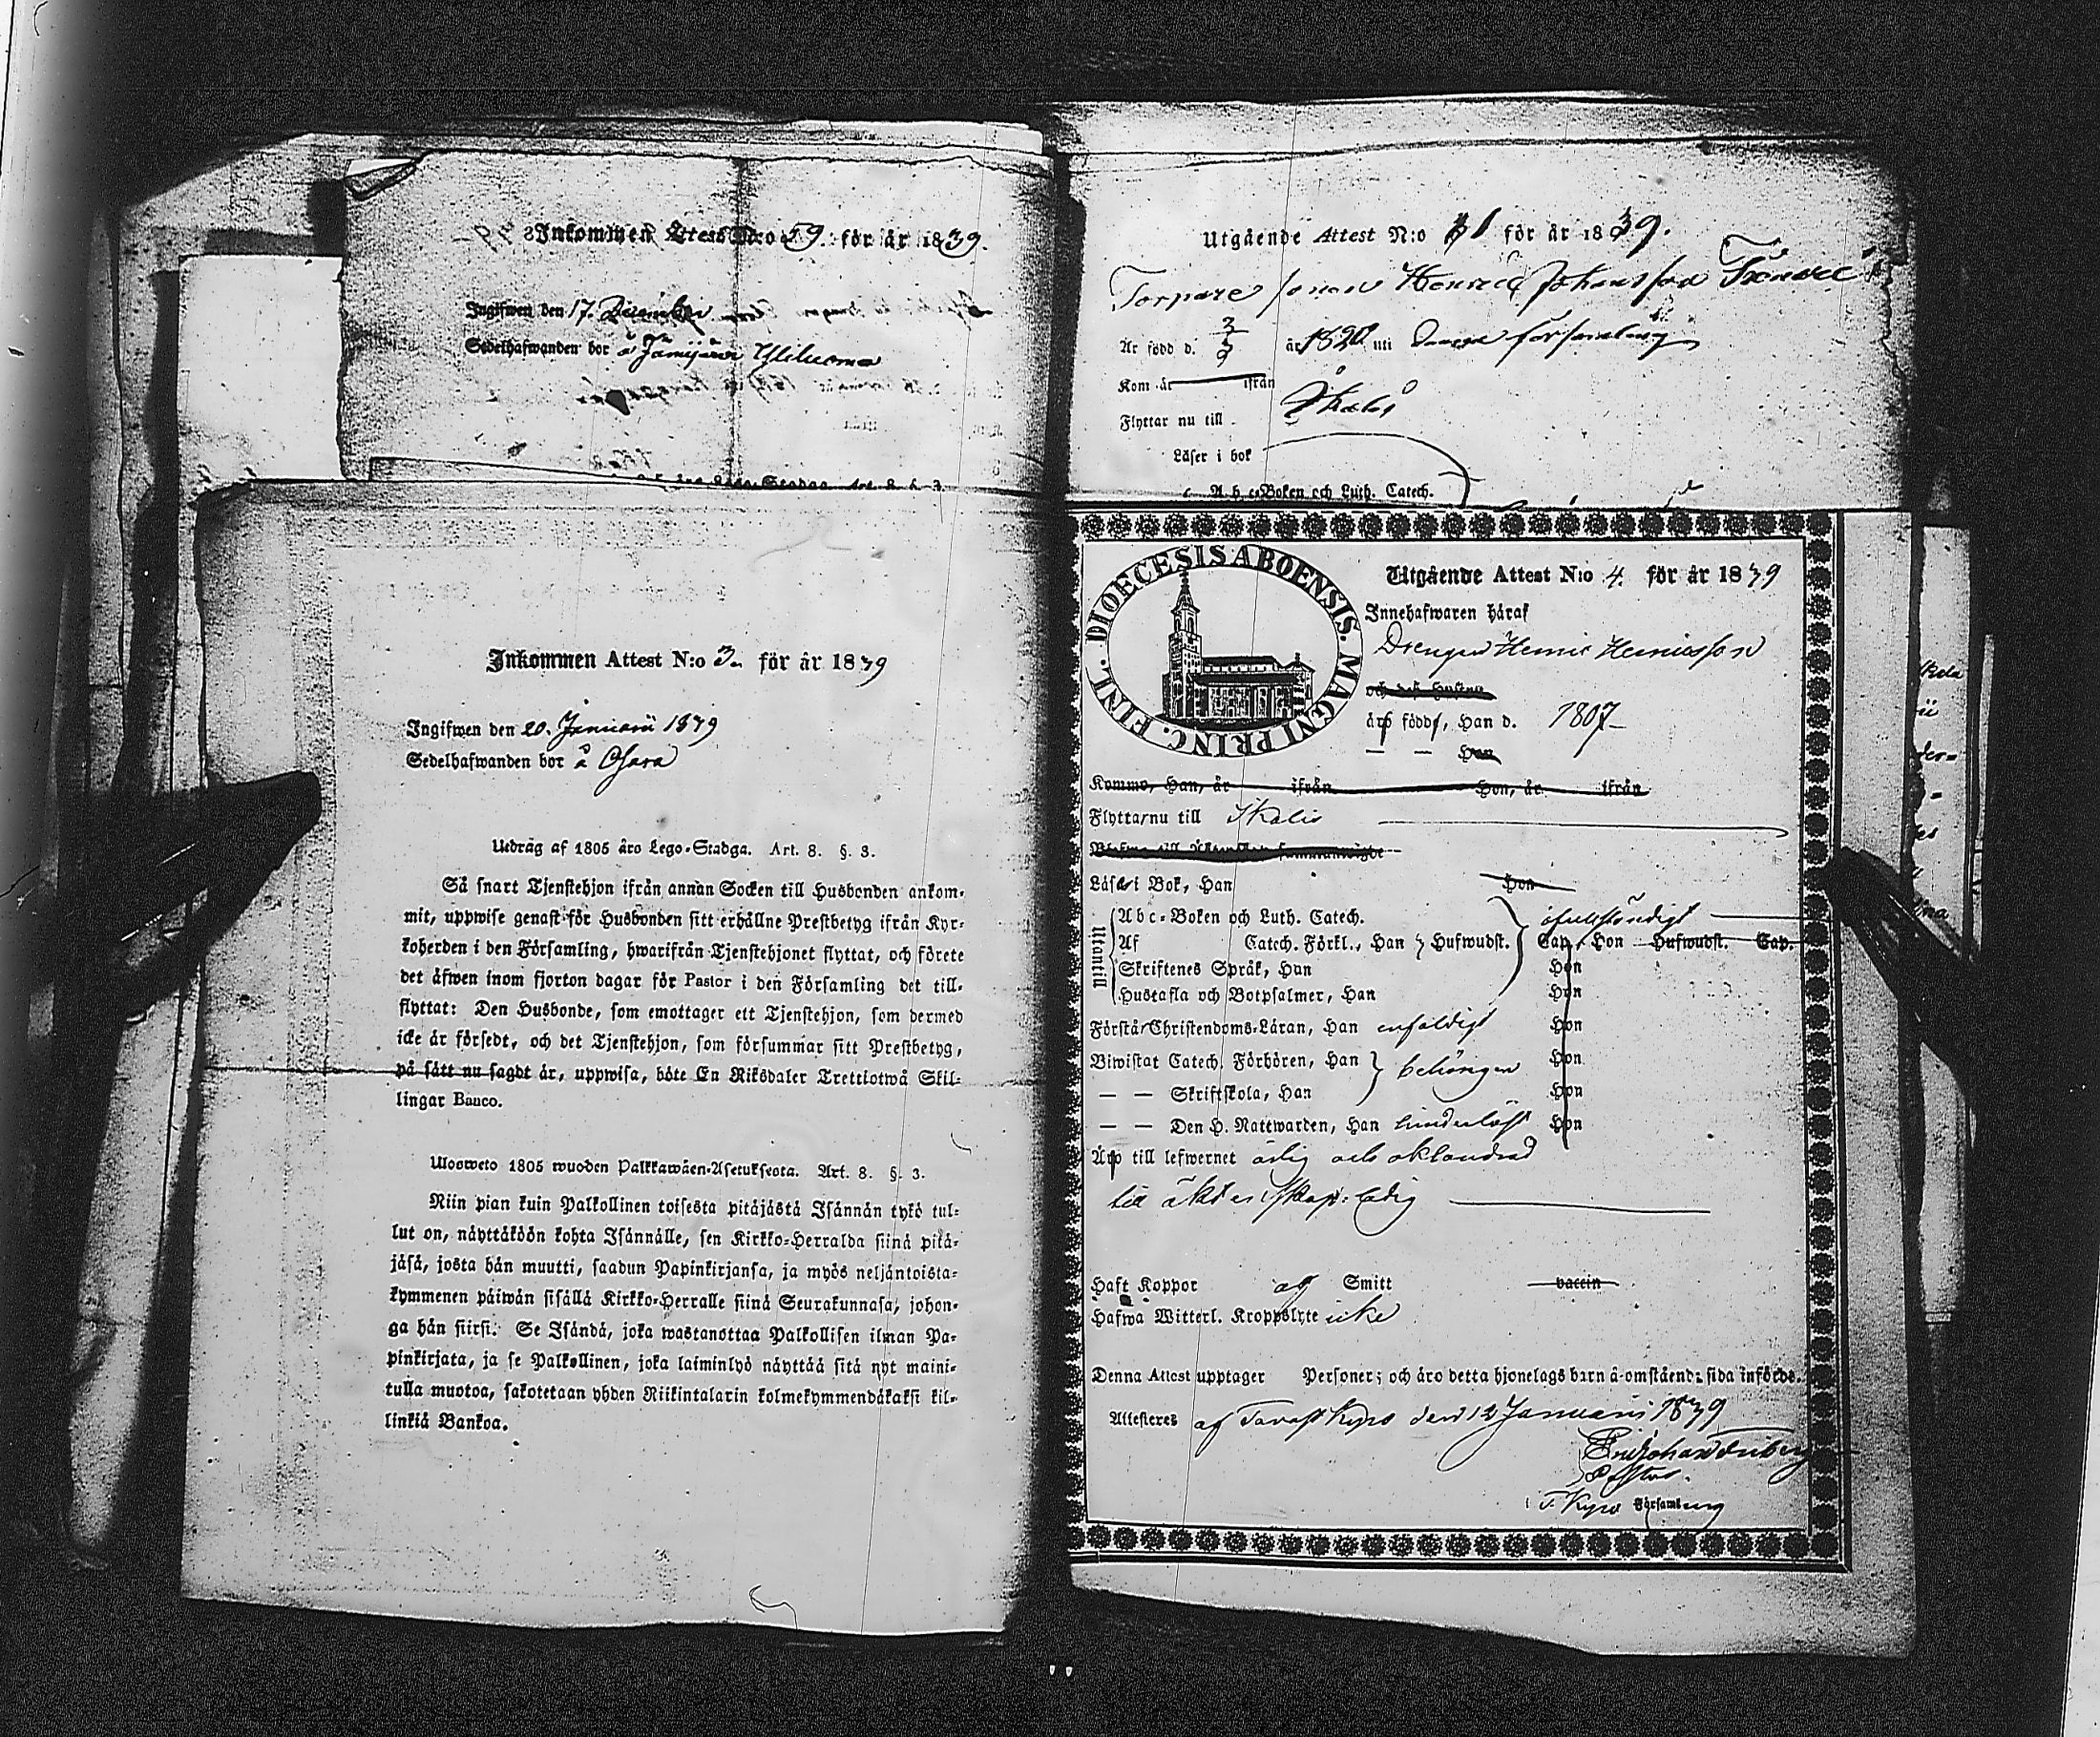 Inkommen Attest N:o 59. för år 1839.
Ingifwen den 17. December
Sedelhafwanden bor å Jämijärvi Yliluoma
Inkommen Attest N:o 3. för år 1839
Ingifwen den 20. Januarii 1839
Sedelhafwanden bor å Osara
Utdrag af 1805 åro Lego-Stadga. Art. 8. §. 3.
Så snart Tjenstehjon ifrån annan Socken till Husbonden ankom-
mit, uppwise genast för Husbonden sitt erhållne Prestbetyg ifrån Kyr-
koherden i den Församling, hwarifrån Tjenstehjonet flyttat, och förete
det äfwen inom fjorton dagar för Pastor i den Församling det till-
flyttat: Den Husbonde, som emottager ett Tjenstehjon, som dermed
icke är försedt, och det Tjenstehjon, som försummar sitt Prestbetyg,
på sätt nu sagdt är, uppwisa, böte En Riksdaler Trettiotwå Skil-
lingar Banco.
Ulosweto 1805 wuoden Palkkawäen-Asetuksesta. Art. 8. §. 3.
Niin pian kuin Palkollinen toisesta pitäjästä Isännän tykö tul-
lut on, näyttäköön kohta Isännälle, sen Kirkko-Herralda siinä pitä-
jäsä, josta hän muutti, saadun Papinkirjansa, ja myös neljäntoista-
kymmenen päiwän sisällä Kirkko-Herralle siinä Seurakunnasa, johon-
ga hän siirsi. Se Isändä, joka wastanottaa Palkollisen ilman Pa-
pinkirjata, ja se Palkollinen, joka laiminlyö näyttää sitä nyt maini-
tulla muotoa, sakotetaan yhden Riikintalarin kolmekymmendäkaksi kil-
linkiä Bankoa.
Utgående Attest N:o 31 för år 1839.
Torpare sonen Henric Johansson
Är född d. 3/9 år 1820 uti denna församling
Kom år ifrån
Flyttar nu till Ikalis
Läser i bok
A b c-Boken och Luth. Catech.
DIOECESIS ABOENSIS. MAGNI PRINC. FINL.
Utgående Attest N:o 4. för år 1839
Innehafwaren häraf
Drengen Henric Henricsson
och des Hustru
äro födde, Han d. 1807
— — Hon
Komme, Han, år ifrån Hon, år ifrån
Flytta nu till Ikalis
Läsa i Bok, Han Hon
Utantill
Abc-Boken och Luth. Catech. ofullständigt
Af Catech. Förkl., Han Hufwudst. Cap., Hon Hufwudst. Cap.
Skriftenes Språk, Han Hon
Hustafla och Botpsalmer, Han Hon
Förstår Christendoms-Läran, Han enfaldigt Hon
Biwistat Catech. Förhören, Han behörigen Hon
— — Skriftskola, Han Hon
— — Den H. Nattwarden, Han hinderlöst Hon
Äro till lefwernet ärlig och oklandrad
till äktenskap: ledig
Haft Koppor af Smitt vaccin
Hafwa Witterl. Kroppslyte icke
Denna Attest upptager Personer; och äro detta hjonelags barn å omstående sida införde.
Attesteres af Tavastkyro den 12 Januarii 1839
Pastor.
i T. Kyro Församling